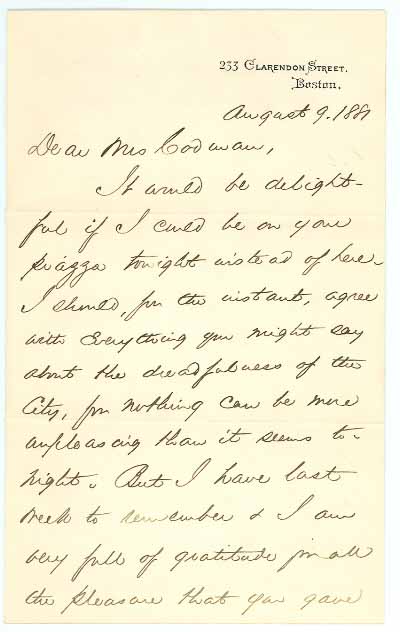 233 Clarendon Street.
Boston.
August 9. 1881
Dear Mrs Codman,
It would be delight-
ful if I could be on your
piazza tonight instead of here.
I should, for the instant, agree
with everything you might say
about the dreadfulness of the
City, for nothing can be more
unpleasing than it seems to-
night. But I have last
week to remember & I am
very full of gratitude for all
the pleasure that you gave